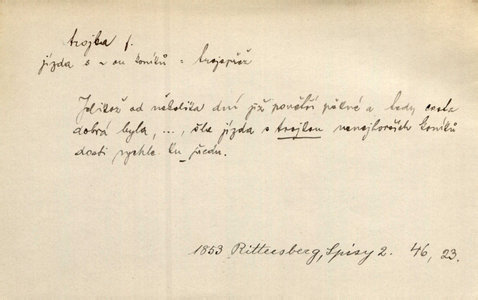 trojka f.
jízda s ~ou koníků = trojspřež
Jelikož od několika dní již povětří pěkné a tedy cesta
dobrá byla, ..., šla jízda s trojkou nenejhorších koníků
dosti rychle ku předu.
1853 Rittersberg, Spisy 2. 46, 23.